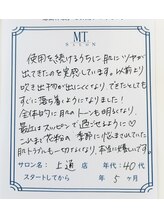 MT
SALON
使用を続けるうちに肌にツヤが
出てきたのを実感しています。以前より
吹き出物が出にくくなり、できたとしても
すぐに落ち着くようになりました!
全体的に肌のトーンも明るくなり、
最近はスッピンで過ごせるように
これまで花粉の季節に
肌トラブルも一切なくなり、本当に嬉しいです。
サロン名: 上通 店 年代: 40代
スタートしてから 年 5ヶ月